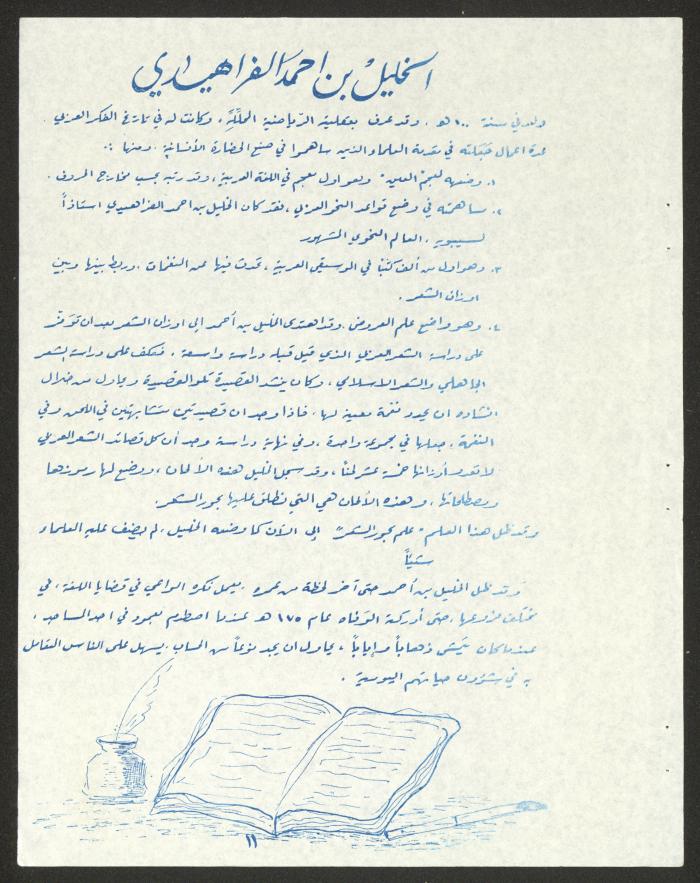 الخليل بن احمد الفراهيدي
ولد في سنة ١٠٠ هـ . وقد عرف بعقليته الرياضية الخلاّقة ، وكانت له في تاريخ الفكر العربي
عدة اعمال جعلته في مقدمة العلماء الذين ساهموا في صنع الحضارة الأنسانية . ومنها :
١. وضعه لمعجم "العين" وهو اول معجم في اللغة العربية ، وقد رتبه بحسب مخارج الحروف .
٢. مساهمته في وضع قواعد النحو العربي ، فقد كان الخليل بن احمد الفراهيدي استاذاً
لسيبويه . العالم النحوي المشهور
٣. وهو اول من ألف كتباً في الموسيقى العربية ، تحدث فيها عن النغمات . وربط بينها وبين
اوزان الشعر .
٤. وهو واضع علم العروض . وقد اهتدى الخليل بن أحمد إلى اوزان الشعر بعد ان توفر
على دراسة الشعر العربي الذي قيل قبله دراسة واسعة . فعكف على دراسة الشعر
الجاهلي والشعر الاسلامي ، وكان ينشد القصيدة تلو القصيدة ويحاول من خلال
انشاده ان يحدد نغمة معينة لها . فاذا وجد ان قصيدتين متشابهتين في اللحن وفي
النغمة . جعلها في مجموعة واحدة ، وفي نهاية دراسته وجد أن كل قصائد الشعر العربي
لا تعدو أوزانها خمسة عشر لحناً ، وقد سجل الخليل هذه الألحان ، ووضع لها رموزها
ومصطلحاتها ، وهذه الألحان هي التي نطلق عليها بحور الشعر .
وقد ظل هذا العلم "علم بحور الشعر" إلى الآن كما وضعه الخليل ، لم يضف عليه العلماء
شيئاً
وقد ظل الخليل بن أحمد حتى آخر لحظة من عمره . يعمل فكره الواعي في قضايا اللغة ، في
مختلف فروعها ، حتى أدركته الوفاة عام ١٧٥ هـ عندما اصطدم بعمود في احد المساجد ،
عندما كان يتمشى ذهاباً وإياباً ، يحاول ان يجد نوعاً من الحساب . يسهل على الناس التعامل
به في شؤون حياتهم اليومية .
١١